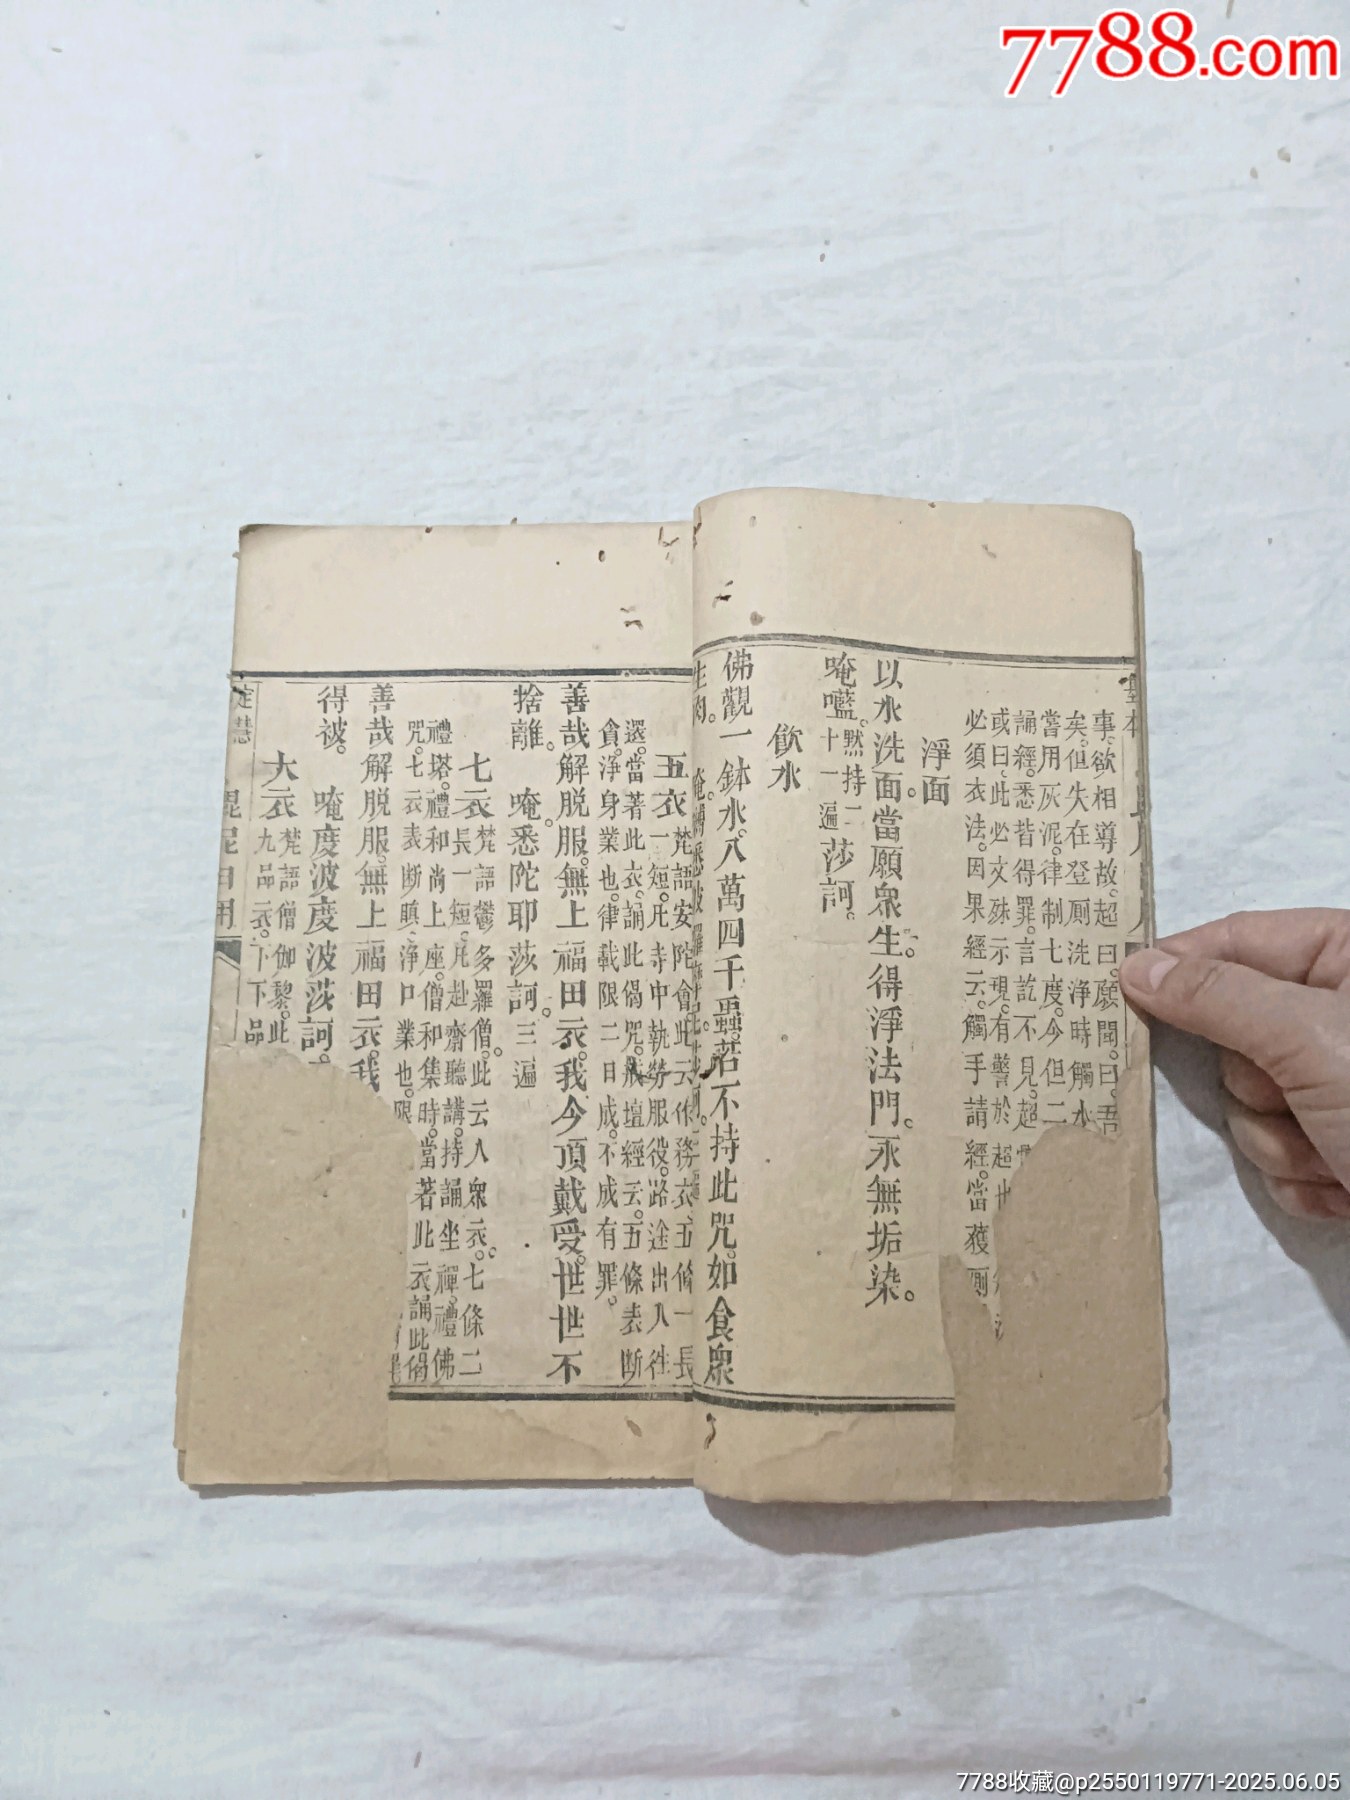 7788.com
事。欲相導故。超曰。願聞。曰。吾
矣。但失在登厠洗淨時觸水
嘗用灰泥。律制七度。今但二
誦經。悉皆得罪。言訖不見。超
或曰。此必文殊示現。有警於超也
必須衣法。因果經云。觸手請經。當獲厠
淨面
以水洗面。當願衆生。得淨法門。永無垢染。
唵㘕。默持二十一遍莎訶。
飲水
佛觀一鉢水。八萬四千蟲。若不持此咒。如食衆
生肉。
五衣梵語安陀會。此云作務衣。五條一長
一短。凡寺中執勞服役。路途出入往
還。當著此衣。誦此偈咒。戒壇經云。五條表斷
貪。淨身業也。律載限二日成。不成有罪。
善哉解脱服。無上福田衣。我今頂戴受。世世不
捨離。唵。悉陀耶莎訶。三遍
七衣梵語鬱多羅僧。此云入衆衣。七條二
長一短。凡赴齋聽講。持誦坐禪。禮佛
禮塔。禮和尚上座。僧和集時。當著此衣誦此偈
咒。七衣表斷瞋。淨口業也。限
善哉解脱服。無上福田衣。我
得被。唵度波度波莎訶。
大衣梵語僧伽黎。此
九品衣。下下品
定慧 毘尼日用
7788收藏@p2550119771-2025.06.05